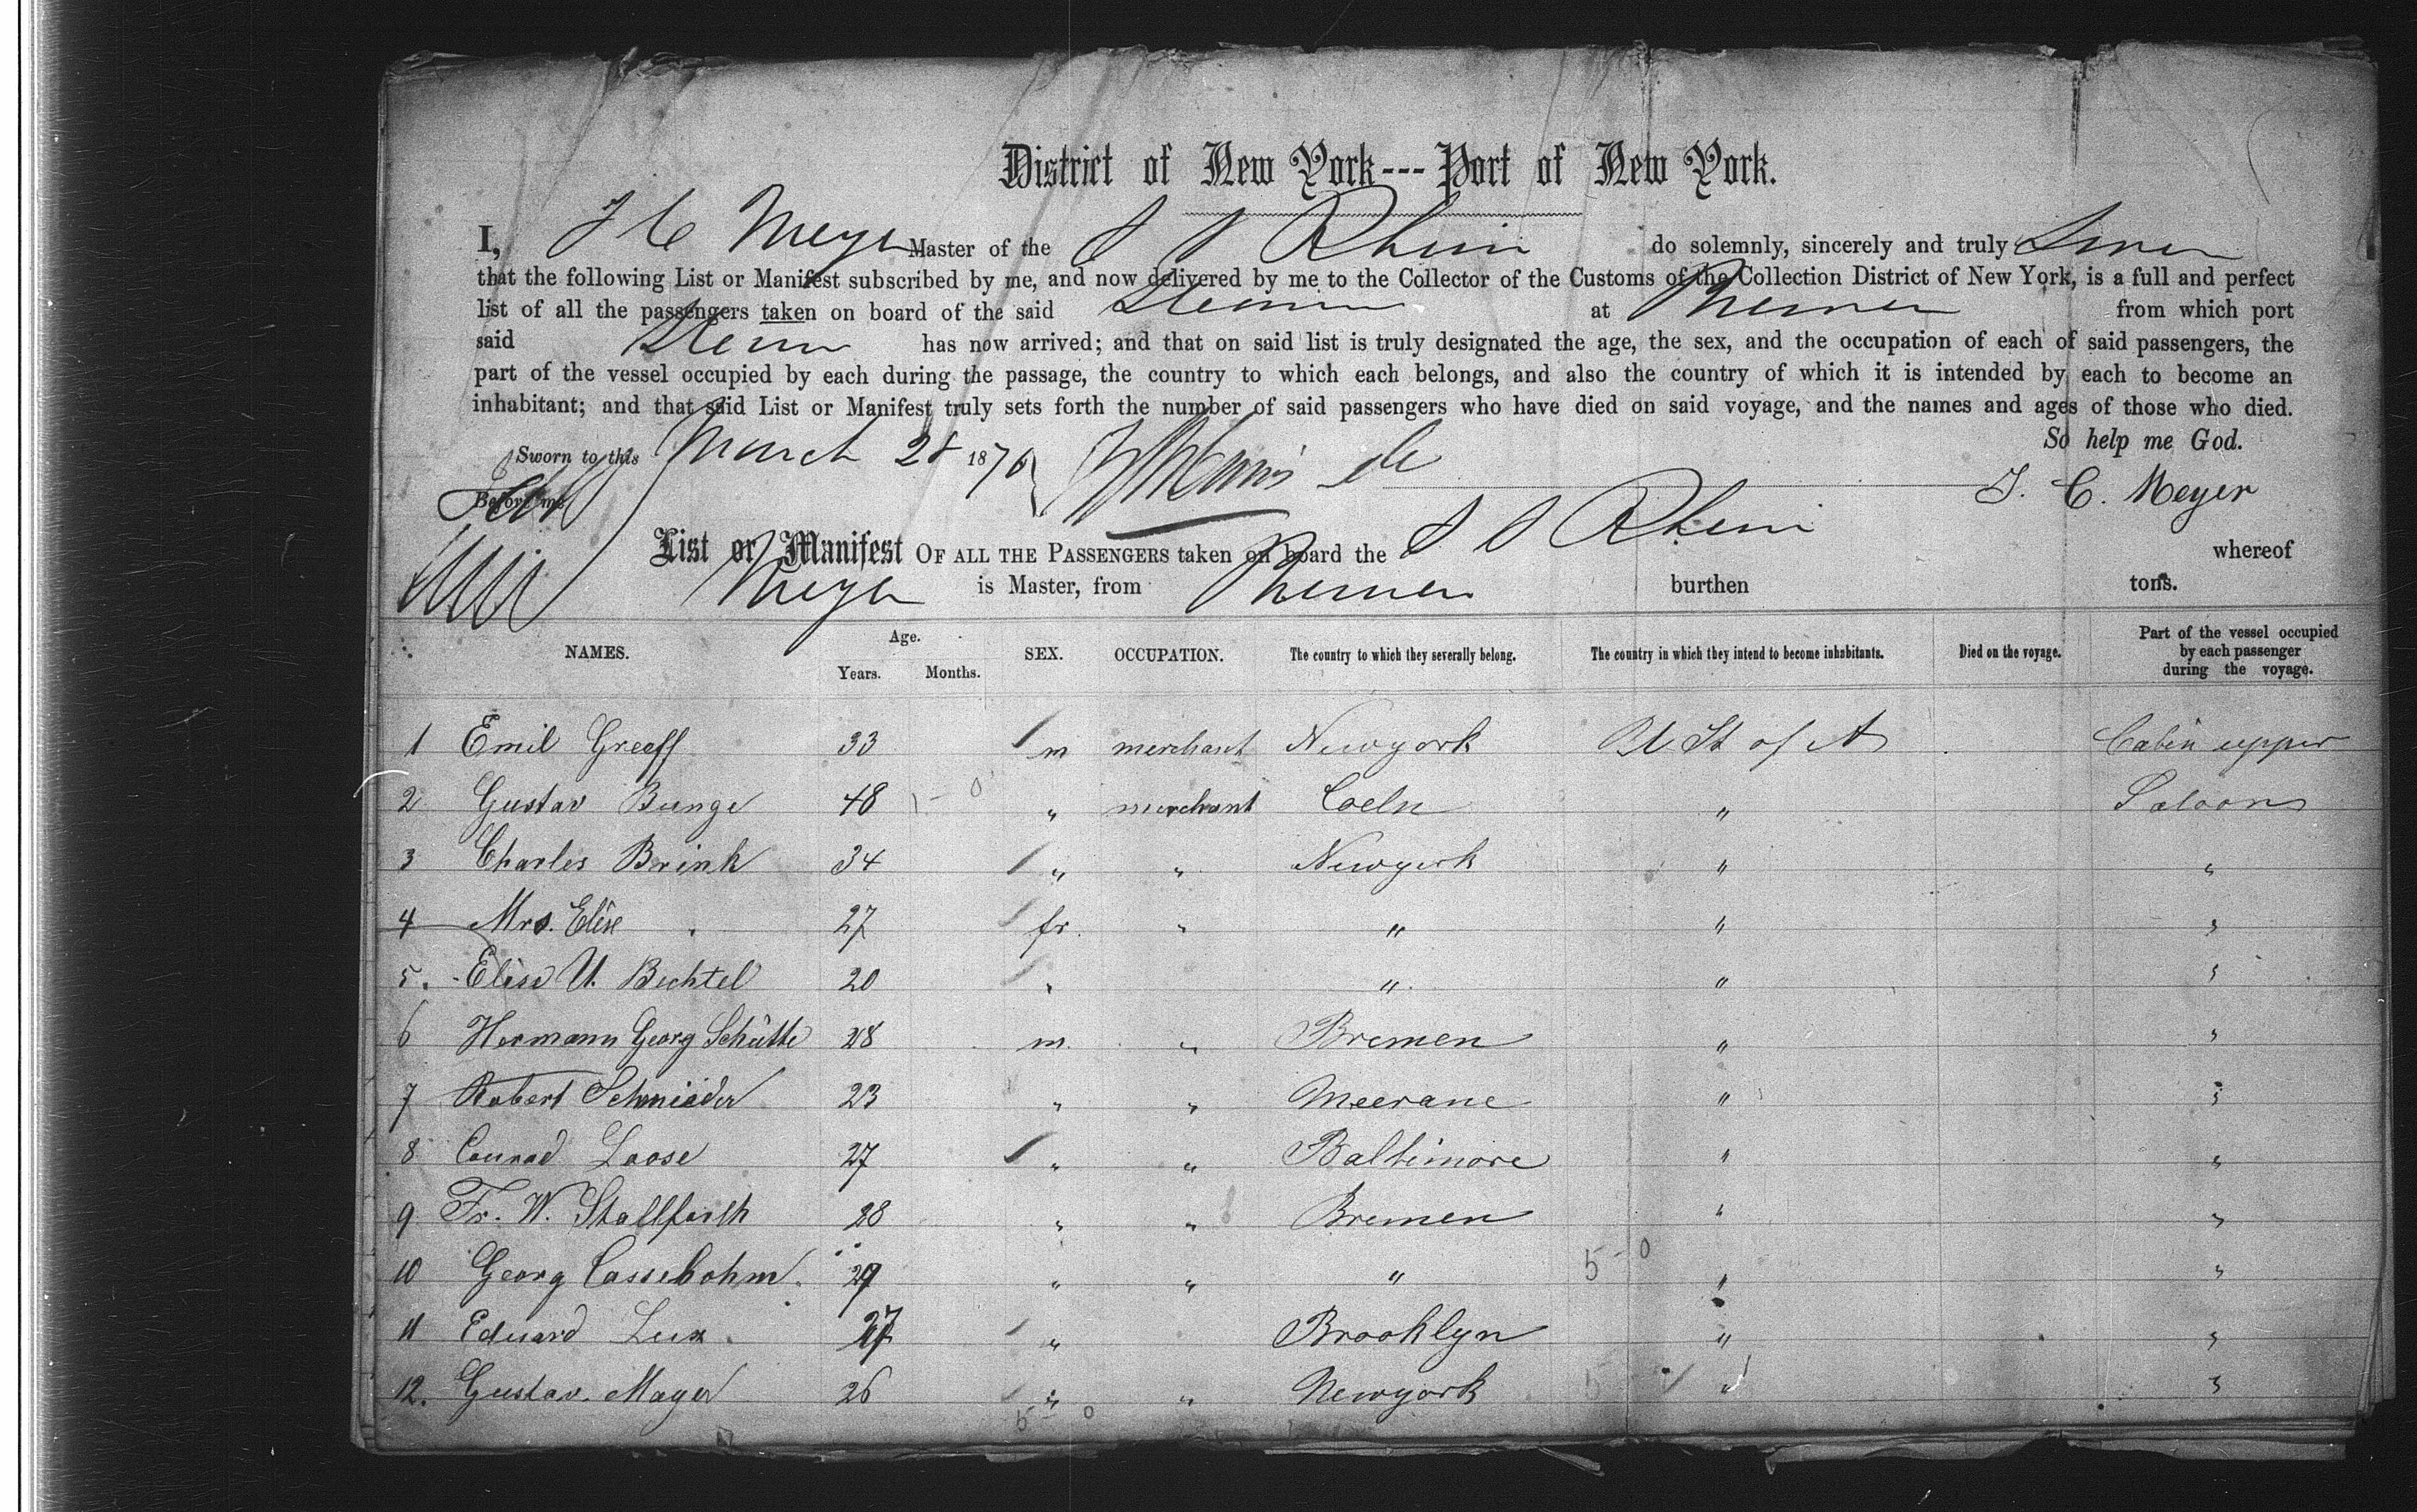 District of New York---Port of New York.
I, J C Meyer Master of the S S Rhein do solemnly, sincerely and truly Swear
that the following List or Manifest subscribed by me, and now delivered by me to the Collector of the Customs of the Collection District of New York, is a full and perfect
list of all the passengers taken on board of the said Steamer at Bremen from which port
said Steamer has now arrived; and that on said list is truly designated the age, the sex, and the occupation of each of said passengers, the
part of the vessel occupied by each during the passage, the country to which each belongs, and also the country of which it is intended by each to become an
inhabitant; and that said List or Manifest truly sets forth the number of said passengers who have died on said voyage, and the names and ages of those who died.
So help me God.
Sworn to this March 1876
Before me J. C. Meyer
List or Manifest OF ALL THE PASSENGERS taken on board the S S Rhein whereof
Meyer is Master, from Bremen burthen tons.
NAMES. Age. Years. Months. SEX. OCCUPATION. The country to which they severally belong. The country in which they intend to become inhabitants. Died on the voyage. Part of the vessel occupied by each passenger during the voyage.
1 Emil Greeff 33 m merchant Newyork U St of A Cabin upper
2 Gustav Bunge 48 " merchant Coeln " Saloon
3 Charles Brink 34 " " Newyork " "
4 Mrs. Elise 27 fr. " " " "
5. Elise U. Bechtel 20 " " " "
6 Hermann Georg Schütte 28 m. " Bremen " "
7 Robert Schmieder 23 " " Meerane " "
8 Conrad Loose 27 " " Baltimore " "
9 Fr. W. Stallforth 28 " " Bremen " "
10 Georg Cassebohm. 29 " " " " "
11 Eduard Lux. 27 " Brooklyn " "
12. Gustav. Mayer 26 " " Newyork " "